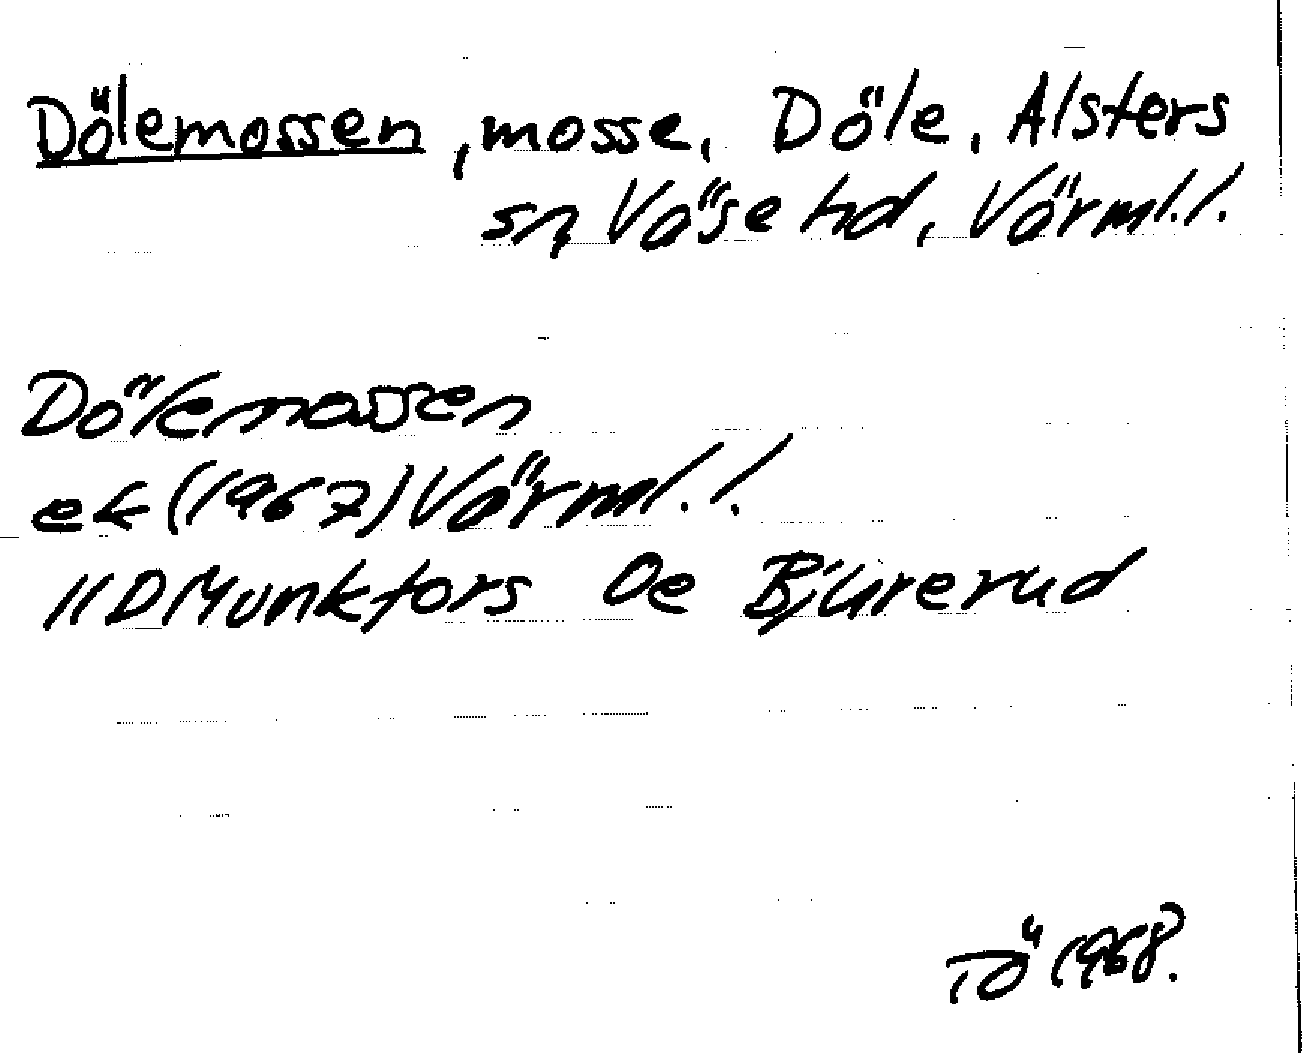 Dölemossen, mosse, Döle, Alsters
sn, Väse hd, Värml.l.
Dölemossen
ek (1967) Värml.l.
11D Munkfors 0e Bjurerud
TÖ 1968.